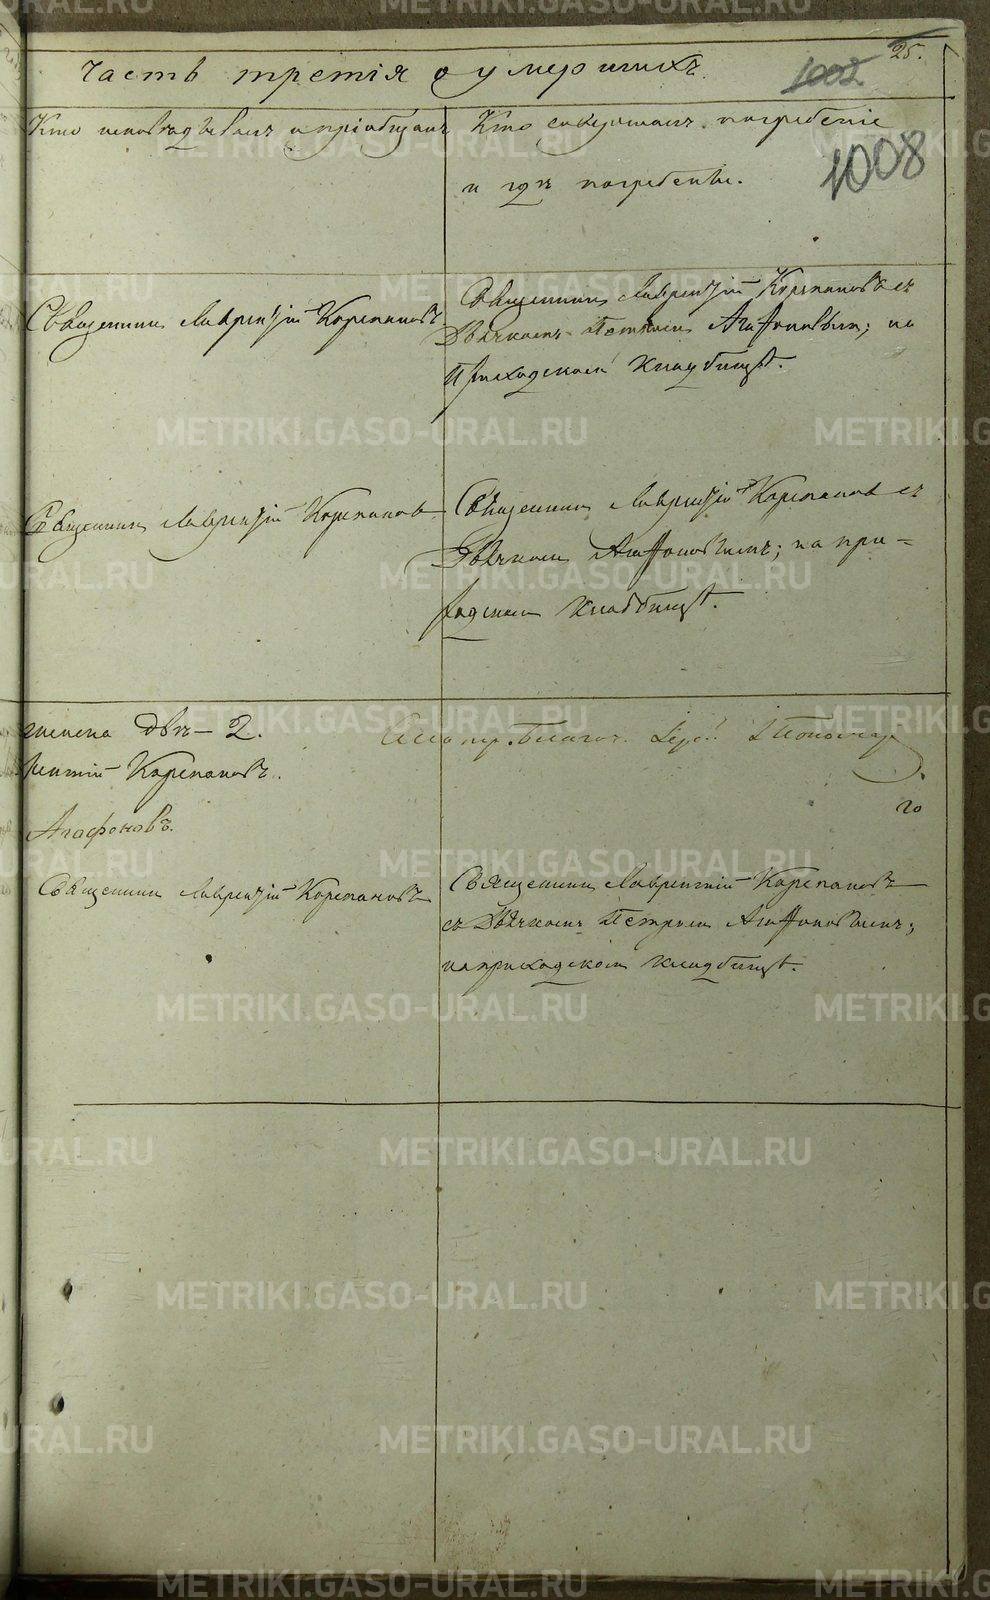 25.
часть третія о умершихъ.
1002
Кто исповѣдывалъ и пріобщалъ
Кто совершалъ погребеніе
и гдѣ погребены.
1008
Священникъ Лаврентій Корепановъ
Священникъ Лаврентій Корепановъ съ
Дьячкомъ Петромъ Агафоновым; на
приходскомъ кладбищѣ.
Священникъ Лаврентій Корепановъ
Священникъ Лаврентій Корепановъ съ
Дьячкомъ Агафоновымъ; на при-
ходскомъ кладбищѣ.
женска двѣ – 2.
рентій Корепановъ.
Агафоновъ.
го
Священникъ Лаврентій Корепановъ
Священникъ Лаврентій Корепановъ
съ Дьячкомъ Петромъ Агафоновымъ;
на приходскомъ кладбищѣ.
METRIKI.GASO-URAL.RU